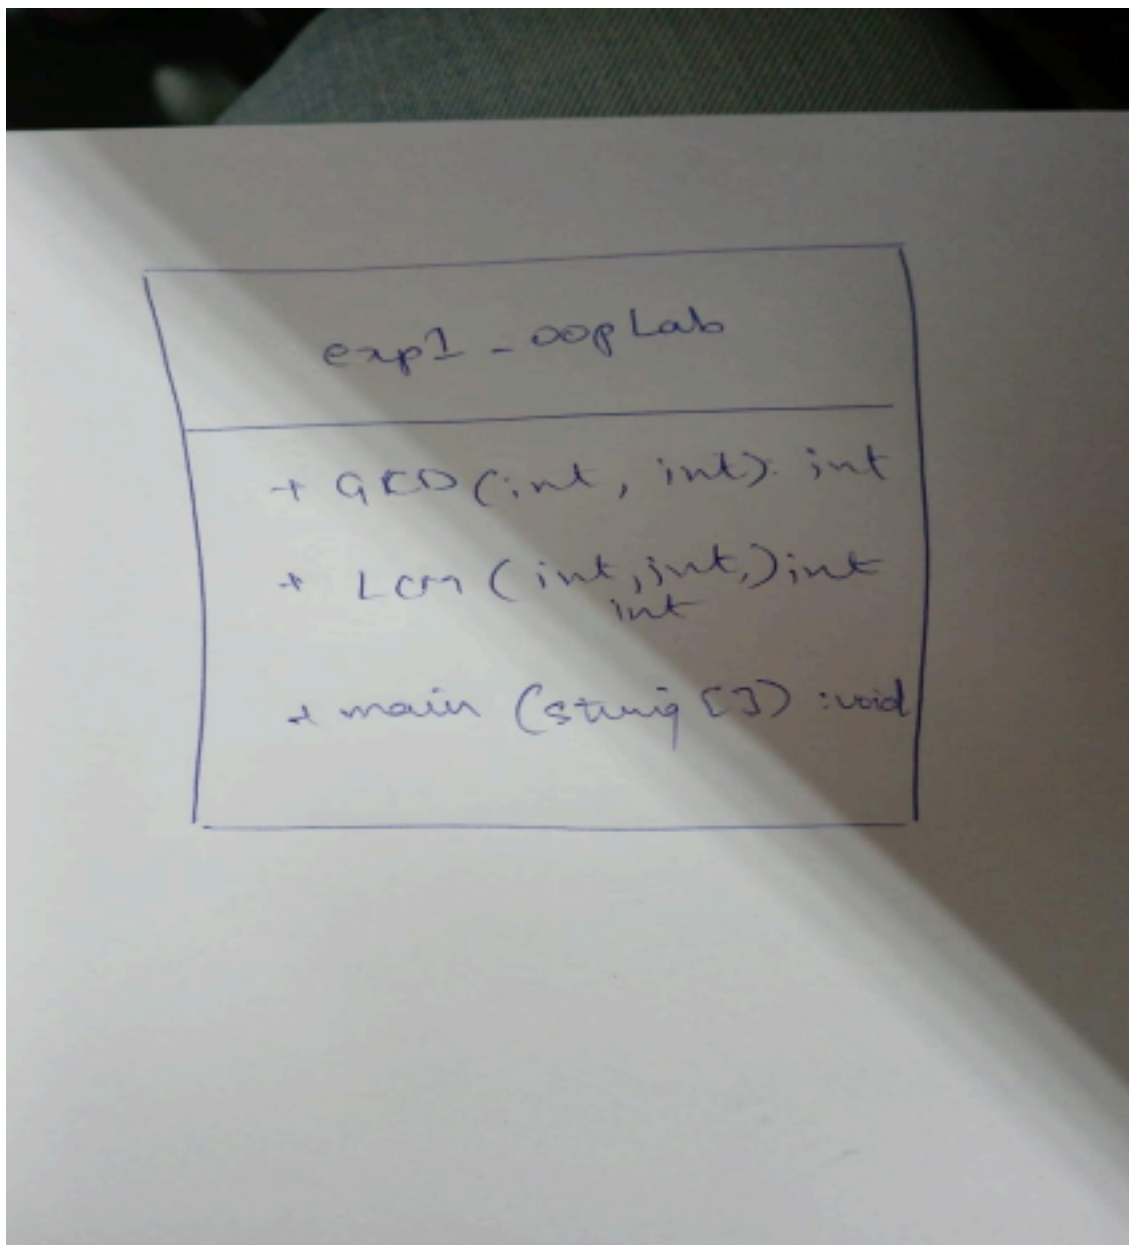 exp1_oopLab
+ GCD (int, int): int
+ LCM (int, int,) int
int
+ main (string []) : void